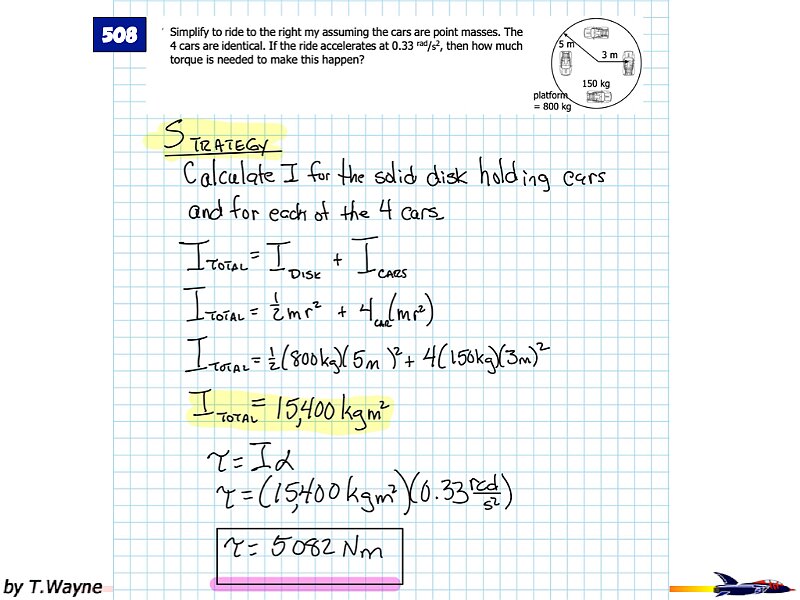 508
Simplify to ride to the right my assuming the cars are point masses. The
4 cars are identical. If the ride accelerates at 0.33 rad/s², then how much
torque is needed to make this happen?
5 m
3 m
150 kg
platform
= 800 kg
STRATEGY
Calculate I for the solid disk holding cars
and for each of the 4 cars.
I TOTAL = I DISK + I CARS
I TOTAL = ½mr² + 4CAR(mr²)
I TOTAL = ½(800kg)(5m)² + 4(150kg)(3m)²
I TOTAL = 15,400 kgm²
τ = Iα
τ = (15,400 kgm²)(0.33 rad/s²)
τ = 5082 Nm
by T.Wayne